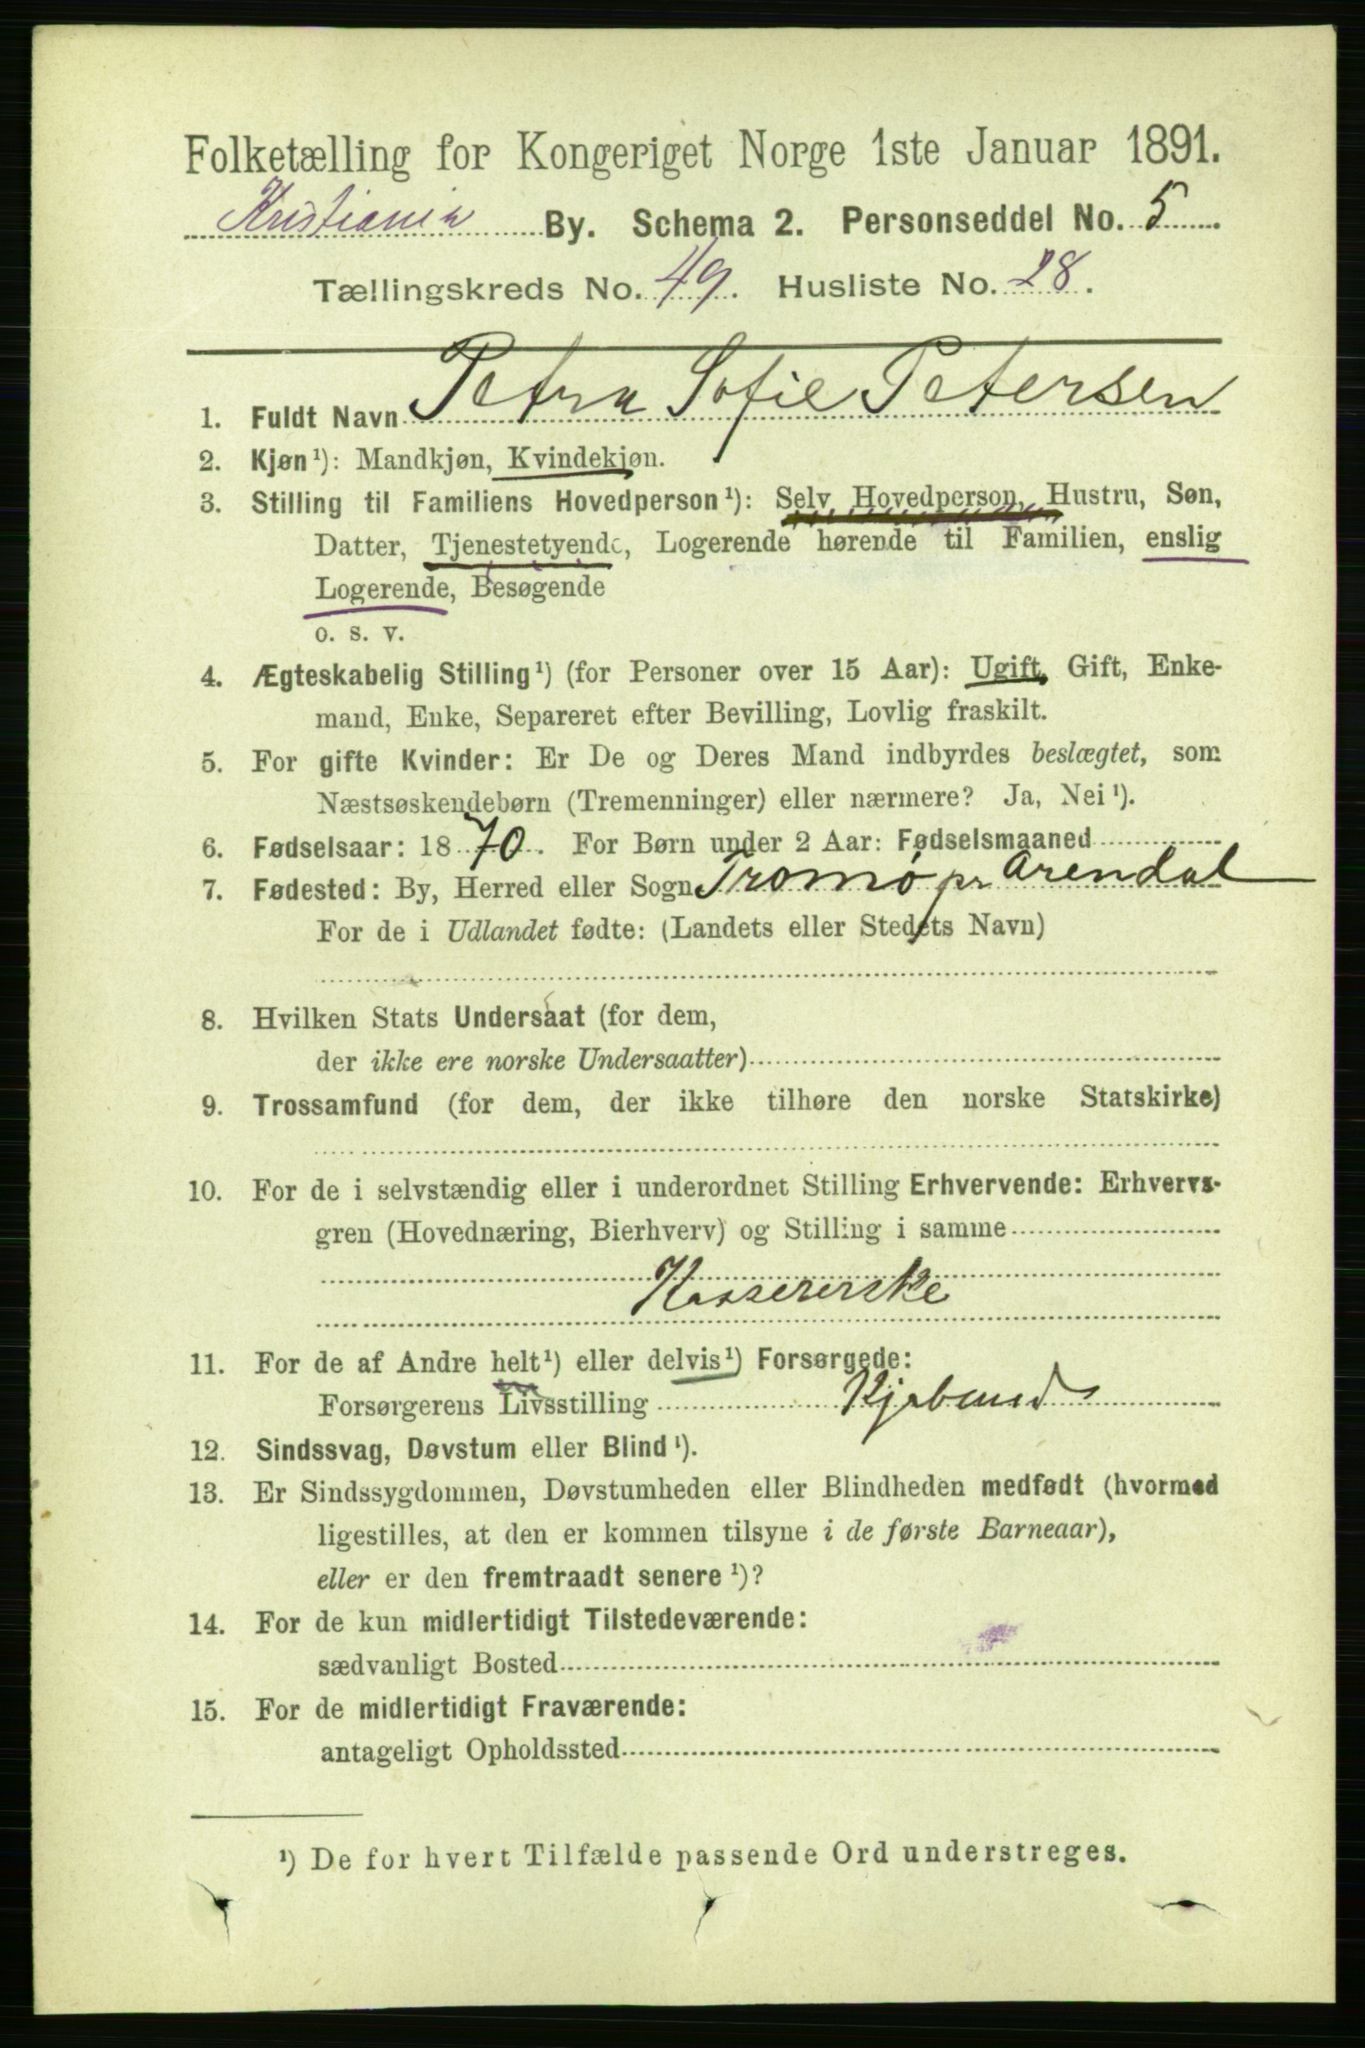 Folketælling for Kongeriget Norge 1ste Januar 1891.
Kristiania By. Schema 2. Personseddel No. 5.
Tællingskreds No. 49. Husliste No. 28.
1. Fuldt Navn Petra Sofie Petersen
2. Kjøn¹): Mandkjøn, Kvindekjøn.
3. Stilling til Familiens Hovedperson¹): Selv Hovedperson, Hustru, Søn,
Datter, Tjenestetyende, Logerende hørende til Familien, enslig
Logerende, Besøgende
o. s. v.
4. Ægteskabelig Stilling¹) (for Personer over 15 Aar): Ugift, Gift, Enke-
mand, Enke, Separeret efter Bevilling, Lovlig fraskilt.
5. For gifte Kvinder: Er De og Deres Mand indbyrdes beslægtet, som
Næstsøskendebørn (Tremenninger) eller nærmere? Ja, Nei¹).
6. Fødselsaar: 1870. For Børn under 2 Aar: Fødselsmaaned
7. Fødested: By, Herred eller Sogn Tromø pr Arendal
For de i Udlandet fødte: (Landets eller Stedets Navn)
8. Hvilken Stats Undersaat (for dem,
der ikke ere norske Undersaatter)
9. Trossamfund (for dem, der ikke tilhøre den norske Statskirke)
10. For de i selvstændig eller i underordnet Stilling Erhvervende: Erhvervs-
gren (Hovednæring, Bierhverv) og Stilling i samme
Kassererske
11. For de af Andre helt¹) eller delvis¹) Forsørgede:
Forsørgerens Livsstilling Kjøbmand
12. Sindssvag, Døvstum eller Blind¹).
13. Er Sindssygdommen, Døvstumheden eller Blindheden medfødt (hvormed
ligestilles, at den er kommen tilsyne i de første Barneaar),
eller er den fremtraadt senere¹)?
14. For de kun midlertidigt Tilstedeværende:
sædvanligt Bosted
15. For de midlertidigt Fraværende:
antageligt Opholdssted
¹) De for hvert Tilfælde passende Ord understreges.